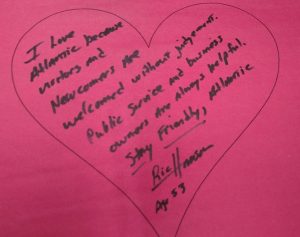 I Love
Atlantic because
visitors and
Newcomers Are
welcomed without judgement.
Public Service and business
owners are Always helpful.
Stay Friendly, Atlantic
Ric Hansen
Age 53